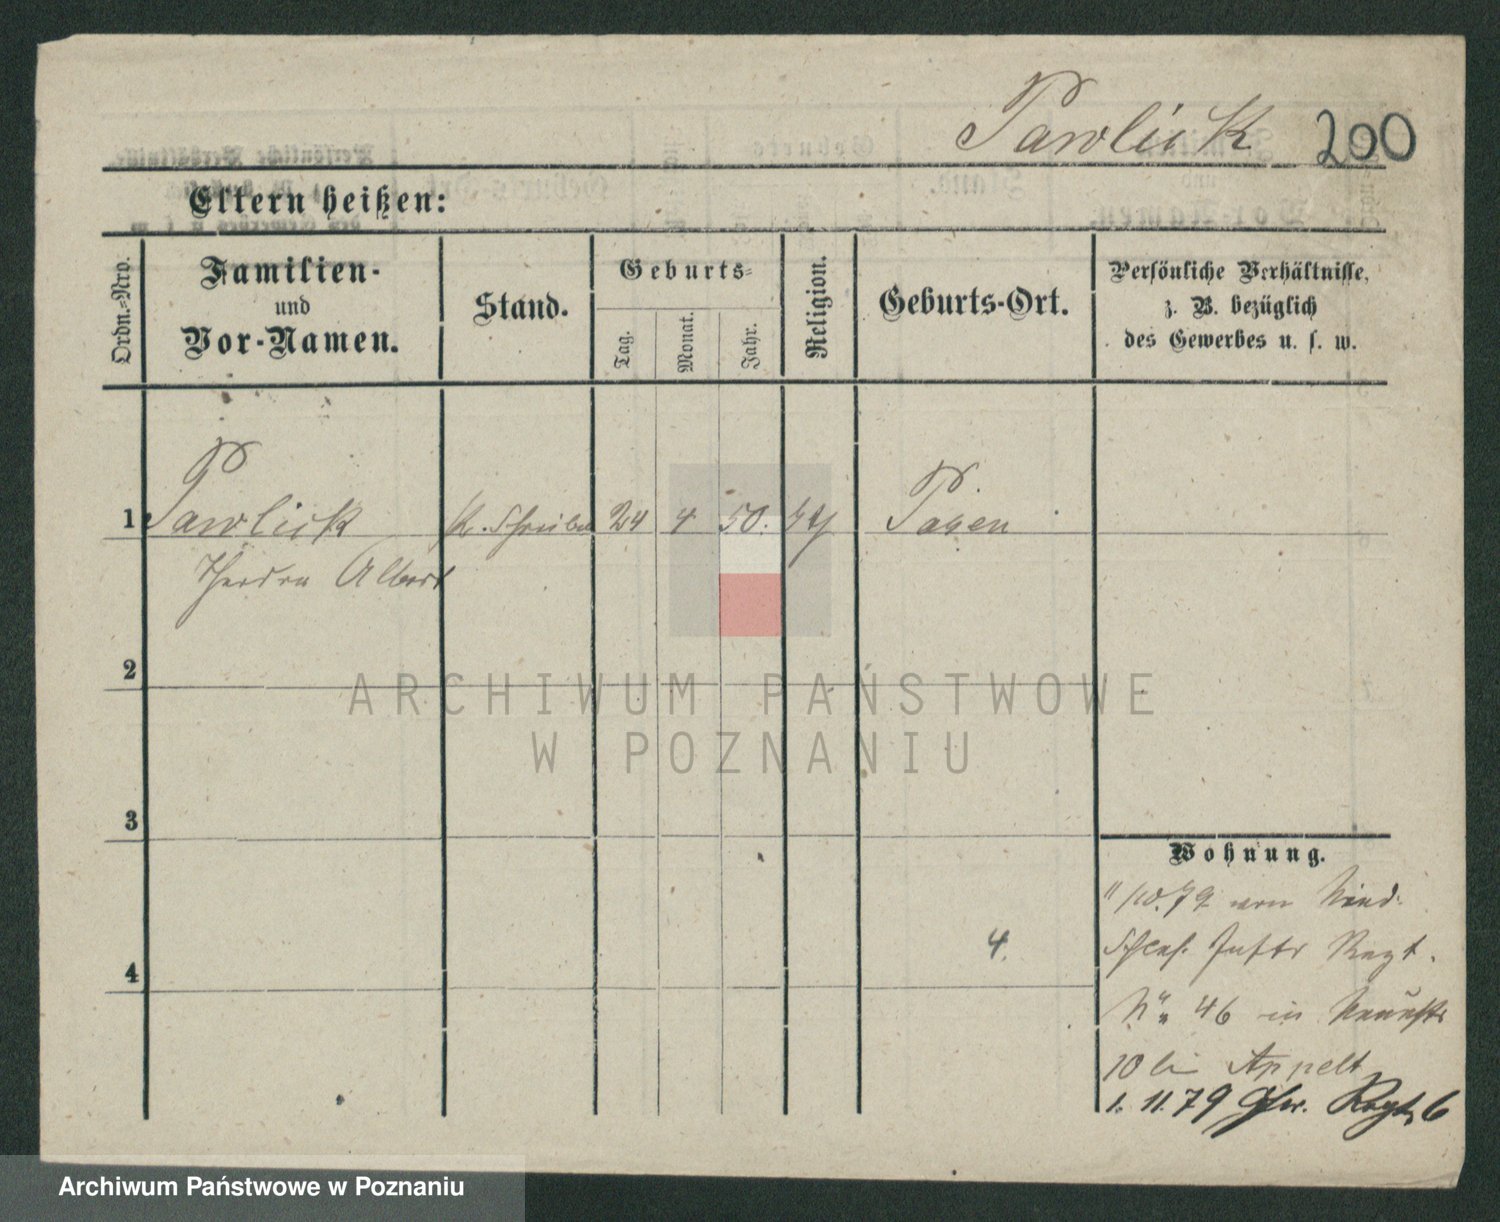 Pawlick 200
Eltern heißen:
Ordn.-Nro.
Familien-
und
Vor-Namen.
Stand.
Geburts-
Tag.
Monat.
Jahr.
Religion.
Geburts-Ort.
Persönliche Verhältnisse,
z. B. bezüglich
des Gewerbes u. s. w.
1 Pawlick 24 4 50. Posen
Albert
2
3
4
4.
Wohnung.
10.79 von Nied.
Schles. Inftr Regt.
No 46 in
10 bei Appelt
1. 11. 79 Regt. 6
ARCHIWUM PAŃSTWOWE
W POZNANIU
Archiwum Państwowe w Poznaniu